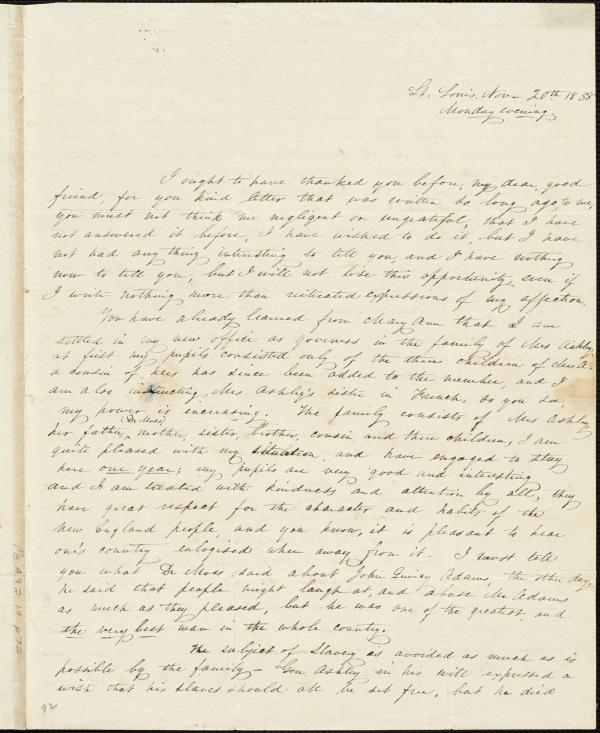 St. Louis, Nov— 20th 1838
Monday evening
I ought to have thanked you before, my dear, good
friend, for you kind letter that was written so long ago to me,
you must not think me negligent or ungrateful, that I have
not answered it before, I have wished to do it, but I have
not had any thing interesting to tell you, and I have nothing
now to tell you, but I will not lose this opportunity, even if
I write nothing more than reiterated expressions of my affection.
You have already learned from Mary Ann that I am
settled in my new office as governess in the family of Mrs Ashley,
at first my pupils consisted only of the three children of Mrs A.
a cousin of hers has since been added to the number, and I
am also instructing Mrs Ashley's sister in French, so you see,
my power is encreasing. The family consists of Mrs Ashley,
her father, (Dr Moss) mother, sister, brother, cousin, and three children, I am
quite pleased with my situation, and have engaged to stay
here one year; my pupils are very good and interesting
and I am treated with kindness and attention by all, they
have great respect for the character and habits of the
New England people, and you know, it is pleasant to hear
one's country eulogised when away from it. I must tell
you what Dr Moss said about John Quincy Adams, the other day,
he said that people might laugh at, and abuse Mr Adams
as much as they pleased, but he was one of the greatest, and
the very best man in the whole country.
The subject of Slavery is avoided as much as is
possible by the family — Gen Ashley in his will expressed a
wish that his slaves should all be set free, but he died
92